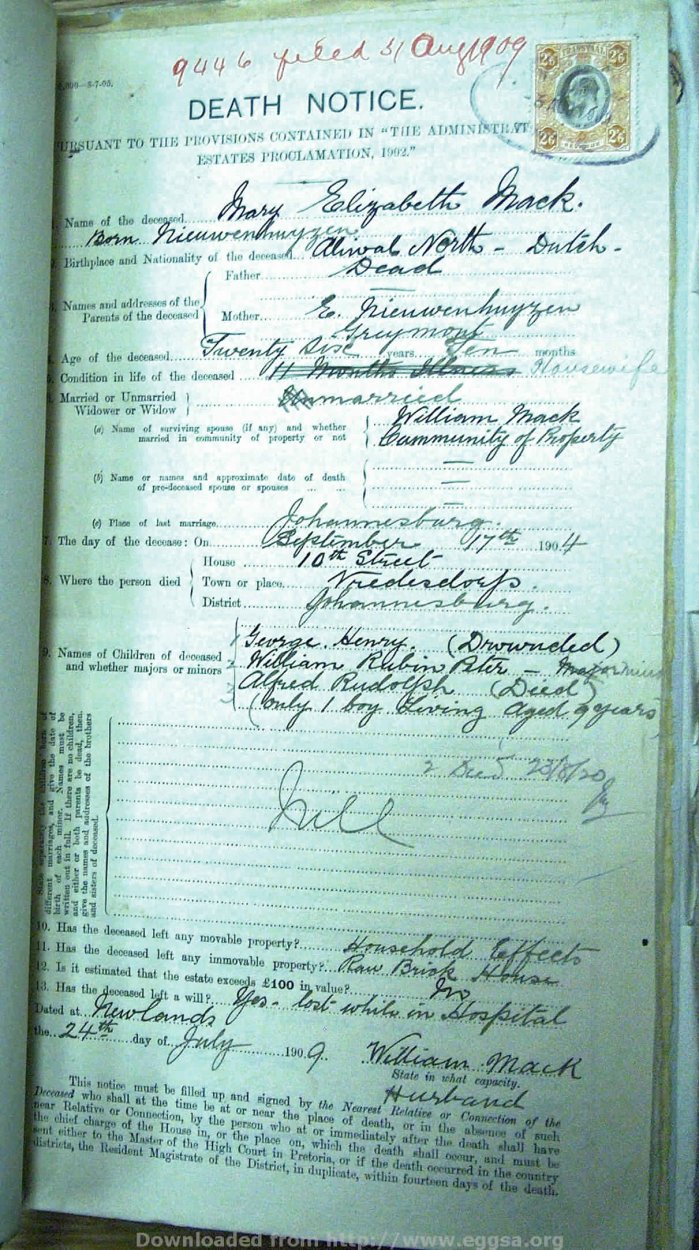 9446 filed 31 Aug 1909
TRANSVAAL
2/6 2/6
2/6 2/6
,000—8-7-05.
DEATH NOTICE.
PURSUANT TO THE PROVISIONS CONTAINED IN "THE ADMINISTRAT
ESTATES PROCLAMATION, 1902."
1. Name of the deceased Mary Elizabeth Mack.
Born Nieuwenhuyzen
2. Birthplace and Nationality of the deceased Aliwal North - Dutch -
3. Names and addresses of the Parents of the deceased
Father Dead
Mother E. Nieuwenhuyzen
Greymont
4. Age of the deceased Twenty Six years Ten months
5. Condition in life of the deceased 11 Months Illness Housewife
6. Married or Unmarried
Widower or Widow
Unmarried
(a) Name of surviving spouse (if any) and whether
married in community of property or not
William Mack
Cummunity of Property
(b) Name or names and approximate date of death
of pre-deceased spouse or spouses ... ...
(c) Place of last marriage Johannesburg.
7. The day of the decease: On September 17th 1904
8. Where the person died
House 10th Street
Town or place Vrededorp.
District Johannesburg.
9. Names of Children of deceased
and whether majors or minors
1 George Henry (Drownded)
2 William Rubin Peter - Major
3 Alfred Rudolph (Died)
(Only 1 boy Living aged 9 years
different marriages, and give the date of
birth of each minor. Names must be
written out in full. If there are no children,
and either or both parents be dead, then
give the names and addresses of the brothers
and sisters of deceased.
23/8/20
10. Has the deceased left any movable property? Household Effects
11. Has the deceased left any immovable property? Raw Brick House
12. Is it estimated that the estate exceeds £100 in value? No
13. Has the deceased left a will? Yes - lost while in Hospital
Dated at Newlands
the 24th day of July 1909.
William Mack
State in what capacity.
Husband
This notice must be filled up and signed by the Nearest Relative or Connection of the
Deceased who shall at the time be at or near the place of death, or in the absence of such
near Relative or Connection, by the person who at or immediately after the death shall have
the chief charge of the House in, or the place on, which the death shall occur, and must be
sent either to the Master of the High Court in Pretoria, or if the death occurred in the country
districts, the Resident Magistrate of the District, in duplicate, within fourteen days of the death.
Downloaded from http://www.eggsa.org